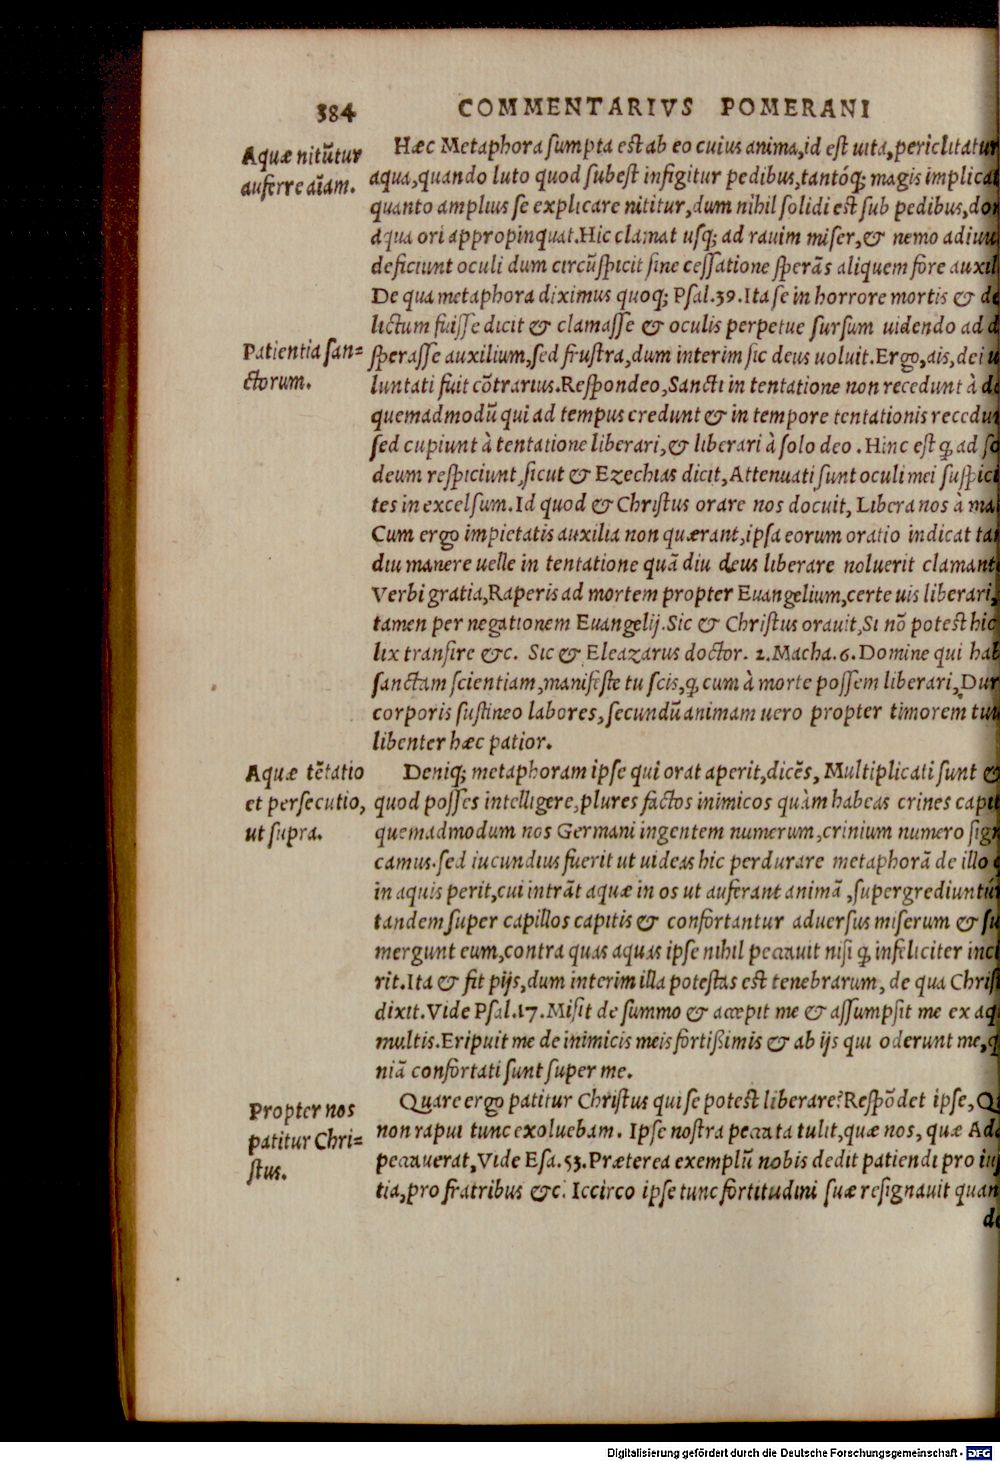 384 COMMENTARIVS POMERANI
Aquæ nitũtur
auferre aĩam.
Hæc Metaphora ſumpta eſt ab eo cuius anima, id eſt uita, periclitatur
aqua, quando luto quod ſubeſt infigitur pedibus, tantóq; magis implicat
quanto amplius ſe explicare nititur, dum nihil ſolidi eſt ſub pedibus, don
aqua ori appropinquat. Hic clamat uſq; ad rauim miſer, & nemo adiuu
deficiunt oculi dum circũſpicit ſine ceſſatione ſperãs aliquem fore auxil
De qua metaphora diximus quoq; Pſal. 39. Ita ſe in horrore mortis & de
lictum fuiſſe dicit & clamaſſe & oculis perpetue ſurſum uidendo ad d
Patientia ſan=
ctorum.
ſperaſſe auxilium, ſed fruſtra, dum interim ſic deus uoluit. Ergo, ais, dei u
luntati fuit cõtrarius. Reſpondeo, Sancti in tentatione non recedunt à de
quemadmodũ qui ad tempus credunt & in tempore tentationis recedu
ſed cupiunt à tentatione liberari, & liberari à ſolo deo. Hinc eſt ꝙ ad ſo
deum reſpiciunt, ſicut & Ezechias dicit, Attenuati ſunt oculi mei ſuſpici
tes in excelſum. Id quod & Chriſtus orare nos docuit, Libera nos à ma
Cum ergo impietatis auxilia non quærant, ipſa eorum oratio indicat tam
diu manere uelle in tentatione quã diu deus liberare noluerit clamant
Verbi gratia, Raperis ad mortem propter Euangelium, certe uis liberari,
tamen per negationem Euangelij. Sic & Chriſtus orauit, Si nõ poteſt hic
lix tranſire &c. Sic & Eleazarus doctor. 2. Macha. 6. Domine qui hab
ſanctam ſcientiam, manifeſte tu ſcis, ꝙ cum à morte poſſem liberari, Dur
corporis ſuſtineo labores, ſecundũ animam uero propter timorem tuu
libenter hæc patior.
Aquæ tẽtatio
et perſecutio,
ut ſupra.
Deniq; metaphoram ipſe qui orat aperit, dicẽs, Multiplicati ſunt &
quod poſſes intelligere, plures factos inimicos quàm habeas crines capit
quemadmodum nos Germani ingentem numerum, crinium numero ſign
camus. ſed iucundius fuerit ut uideas hic perdurare metaphorã de illo q
in aquis perit, cui intrãt aquæ in os ut auferant animã, ſupergrediuntúr
tandem ſuper capillos capitis & confortantur aduerſus miſerum & ſu
mergunt eum, contra quas aquas ipſe nihil peccauit niſi ꝙ infeliciter inci
rit. Ita & fit pijs, dum interim illa poteſtas eſt tenebrarum, de qua Chriſt
dixit. Vide Pſal. 17. Miſit de ſummo & accepit me & aſſumpſit me ex aq
multis. Eripuit me de inimicis meis fortißimis & ab ijs qui oderunt me, q
niã confortati ſunt ſuper me.
Propter nos
patitur Chri=
ſtus.
Quare ergo patitur Chriſtus qui ſe poteſt liberare? Reſpõdet ipſe, Q
non rapui tunc exoluebam. Ipſe noſtra peccata tulit, quæ nos, quæ Ada
peccauerat, Vide Eſa. 53. Præterea exemplũ nobis dedit patiendi pro iuſ
tia, pro fratribus &c. Iccirco ipſe tunc fortitudini ſuæ reſignauit quan
de
Digitalisierung gefördert durch die Deutsche Forschungsgemeinschaft - DFG